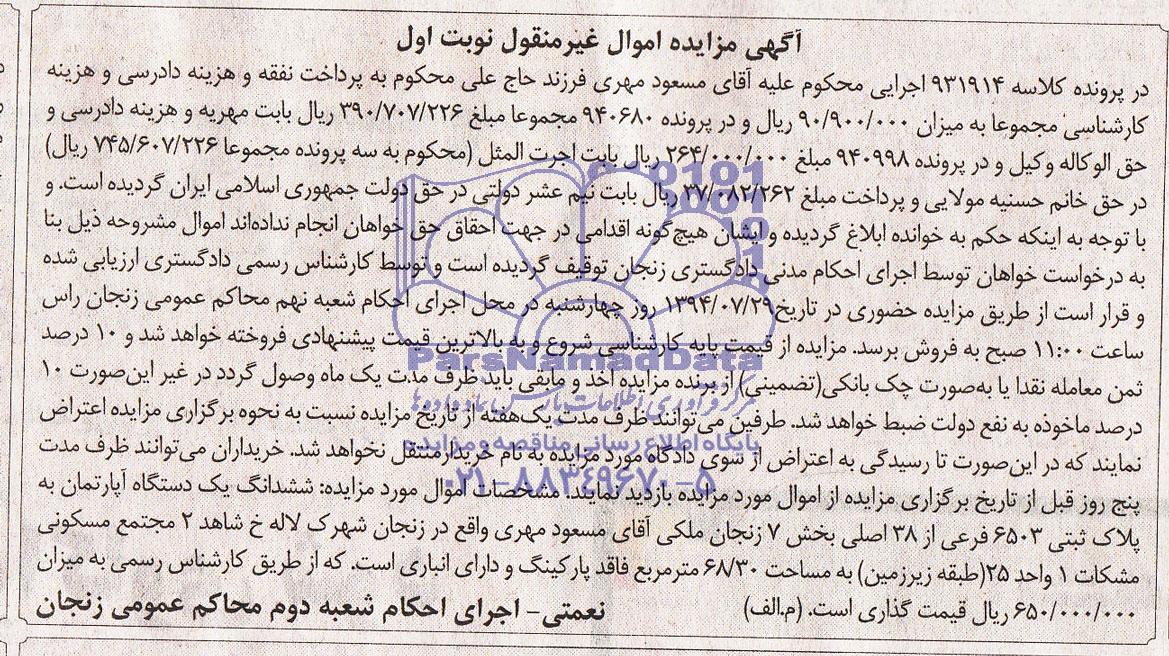 آگهی مزایده اموال غیرمنقول نوبت اول
در پرونده کلاسه ۹۳۱۹۱۴ اجرایی محکوم علیه آقای مسعود مهری فرزند حاج علی محکوم به پرداخت نفقه و هزینه دادرسی و هزینه
کارشناسی مجموعا به میزان ۹۰/۹۰۰/۰۰۰ ریال و در پرونده ۹۴۰۶۸۰ مجموعا مبلغ ۳۹۰/۷۰۷/۲۲۶ ریال بابت مهریه و هزینه دادرسی و
حق الوکاله وکیل و در پرونده ۹۴۰۹۹۸ مبلغ ۲۶۴/۰۰۰/۰۰۰ ریال بابت اجرت المثل (محکوم به سه پرونده مجموعا ۷۴۵/۶۰۷/۲۲۶ ریال)
در حق خانم حسنیه مولایی و پرداخت مبلغ ۳۷/۰۸۲/۲۶۲ ریال بابت نیم عشر دولتی در حق دولت جمهوری اسلامی ایران گردیده است. و
با توجه به اینکه حکم به خوانده ابلاغ گردیده و ایشان هیچ‌گونه اقدامی در جهت احقاق حق خواهان انجام نداده‌اند اموال مشروحه ذیل بنا
به درخواست خواهان توسط اجرای احکام مدنی دادگستری زنجان توقیف گردیده است و توسط کارشناس رسمی دادگستری ارزیابی شده
و قرار است از طریق مزایده حضوری در تاریخ۱۳۹۴/۰۷/۲۹ روز چهارشنبه در محل اجرای احکام شعبه نهم محاکم عمومی زنجان راس
ساعت ۱۱:۰۰ صبح به فروش برسد. مزایده از قیمت پایه کارشناسی شروع و به بالاترین قیمت پیشنهادی فروخته خواهد شد و ۱۰ درصد
ثمن معامله نقدا یا به‌صورت چک بانکی(تضمینی) از برنده مزایده اخذ و مابقی باید ظرف مدت یک ماه وصول گردد در غیر این‌صورت ۱۰
درصد ماخوذه به نفع دولت ضبط خواهد شد. طرفین می‌توانند ظرف مدت یک‌هفته از تاریخ مزایده نسبت به نحوه برگزاری مزایده اعتراض
نمایند که در این‌صورت تا رسیدگی به اعتراض از سوی دادگاه مورد مزایده به نام خریدارمنتقل نخواهد شد. خریداران می‌توانند ظرف مدت
پنج روز قبل از تاریخ برگزاری مزایده از اموال مورد مزایده بازدید نمایند. مشخصات اموال مورد مزایده: ششدانگ یک دستگاه آپارتمان به
پلاک ثبتی ۶۵۰۳ فرعی از ۳۸ اصلی بخش ۷ زنجان ملکی آقای مسعود مهری واقع در زنجان شهرک لاله خ شاهد ۲ مجتمع مسکونی
مشکات ۱ واحد ۲۵(طبقه زیرزمین) به مساحت ۶۸/۳۰ مترمربع فاقد پارکینگ و دارای انباری است. که از طریق کارشناس رسمی به میزان
۶۵۰/۰۰۰/۰۰۰ ریال قیمت گذاری است. (م.الف)
نعمتی- اجرای احکام شعبه دوم محاکم عمومی زنجان
ParsNamadData
مرکز فرآوری اطلاعات پارس نماد داده‌ها
پایگاه اطلاع رسانی مناقصه و مزایده
۰۲۱-۸۸۳۴۹۶۷۰-۵